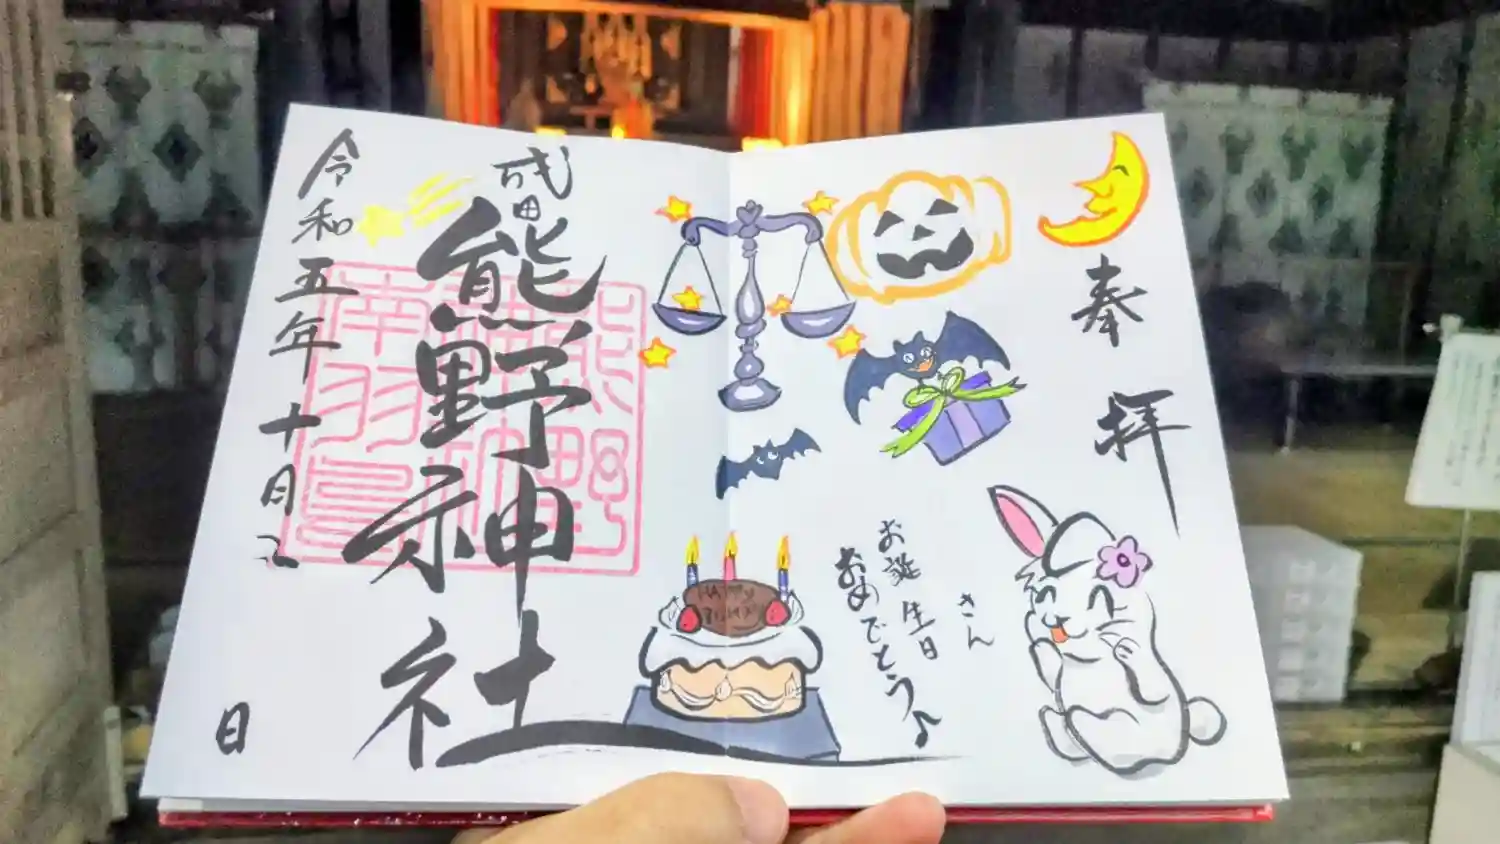 奉拝
さん
お誕生日
おめでとう♪
HAPPY
熊野神社
令和五年十月
日